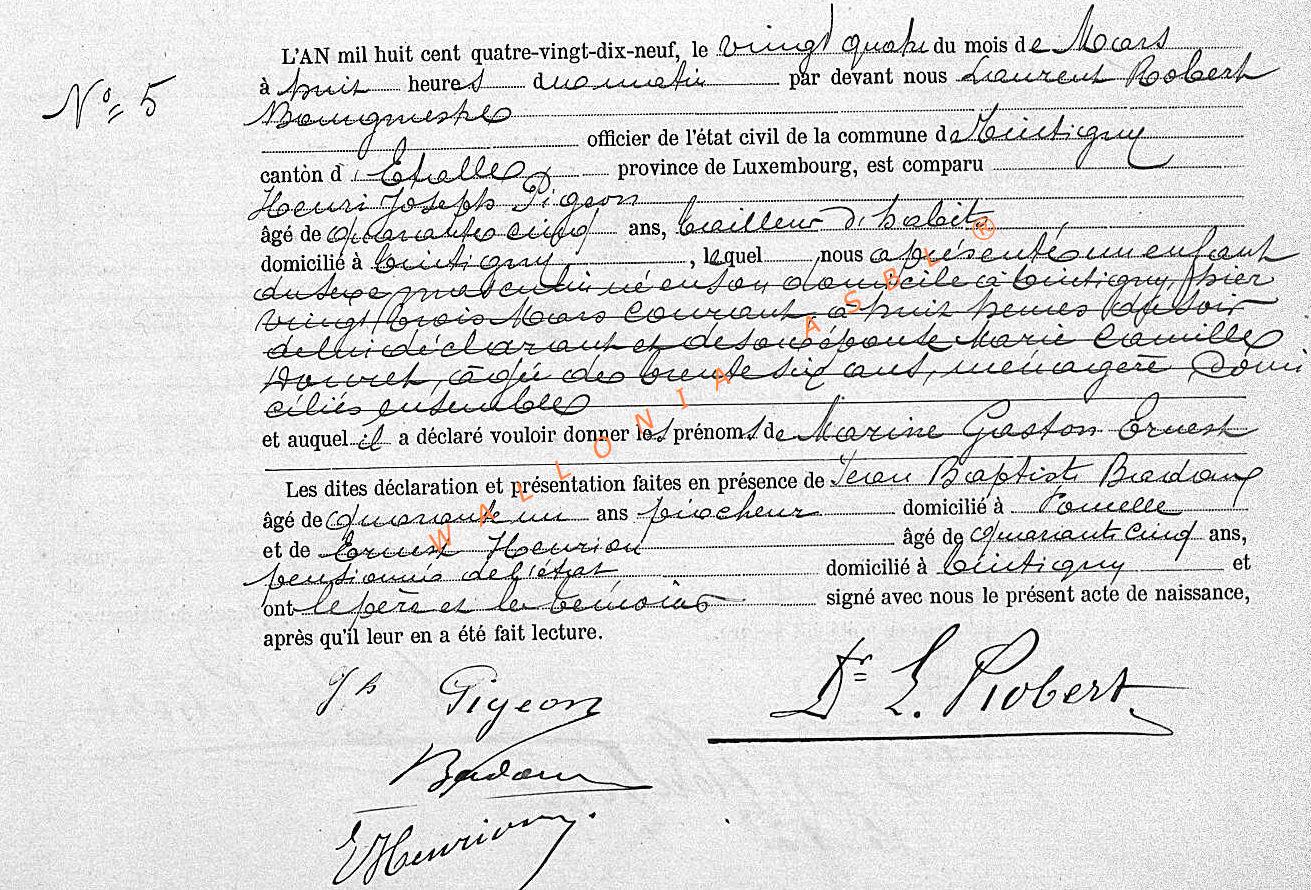 L'AN mil huit cent quatre-vingt-dix-neuf, le vingt quatre du mois de Mars
N° 5
à huit heures du matin par devant nous Laurent Robert
Bourgmestre
officier de l'état civil de la commune de Tintigny
canton d'Etalle province de Luxembourg, est comparu
Henri Joseph Pigeon
âgé de quarante cinq ans, tailleur d'habits
domicilié à Tintigny, lequel nous a présenté un enfant
du sexe masculin né en son domicile à Tintigny, hier
vingt trois Mars courant, à huit heures du soir
de lui déclarant et de son épouse Marie Camille
âgée de trente six ans, ménagère, domi
ciliés ensemble
et auquel il a déclaré vouloir donner les prénoms de Marine Gaston Ernest
Les dites déclaration et présentation faites en présence de Jean Baptiste Badoux
âgé de quarante un ans piocheur domicilié à
et de Ernest Henrion âgé de quarante cinq ans,
pensionné de l'état domicilié à Tintigny et
ont le père et les témoins signé avec nous le présent acte de naissance,
après qu'il leur en a été fait lecture.
Jh Pigeon
Dr L. Robert
Badoux
E Henrion.
WALLONIA ASBL ®